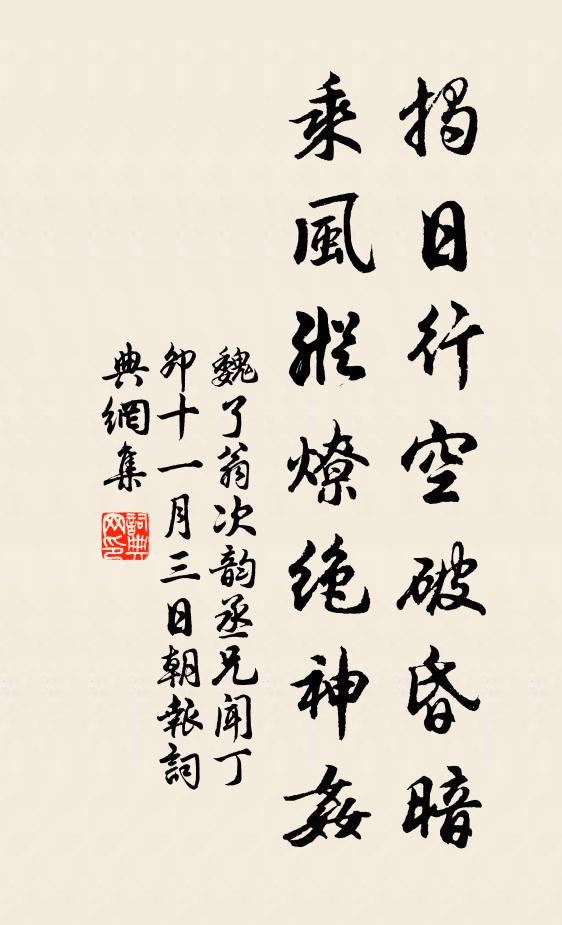 揭日行空破昏暗
乘風縱燎絶神姦
魏了翁次韵丞兄闻丁
卯十一月三日朝報詞
典網集
詞典
网印